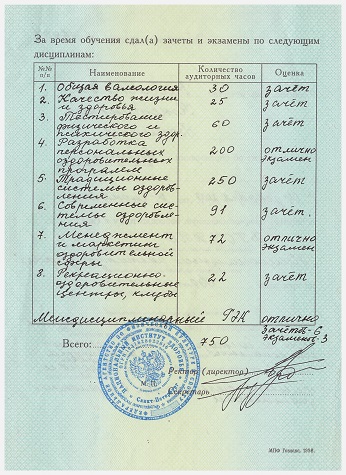 За время обучения сдал(а) зачеты и экзамены по следующим
дисциплинам:
№№ п/п Наименование Количество аудиторных часов Оценка
1. Общая валеология 30 зачёт
2. Качество жизни 25 зачёт
и здоровья
3. Тестирование
физического и 60 зачёт
психического здор.
4. Разработка
персональных 200 отлично
оздоровительных экзамен
программ
5. Традиционные 250 зачёт
системы оздоров-
ления
6. Современные сис- 91 зачёт.
темы оздоровле-
ния
7. Менеджмент 72 отлично
и маркетинг экзамен
оздоровительной
сферы
8. Рекреационно- 22 зачёт
оздоровительные
центры, клубы
Междисциплинарный ГЭК отлично
зачётов-6
Всего: 750 экзаменов-3
Ректор (директор)
Секретарь
Санкт-Петербург
МПФ Гознака, 1998.